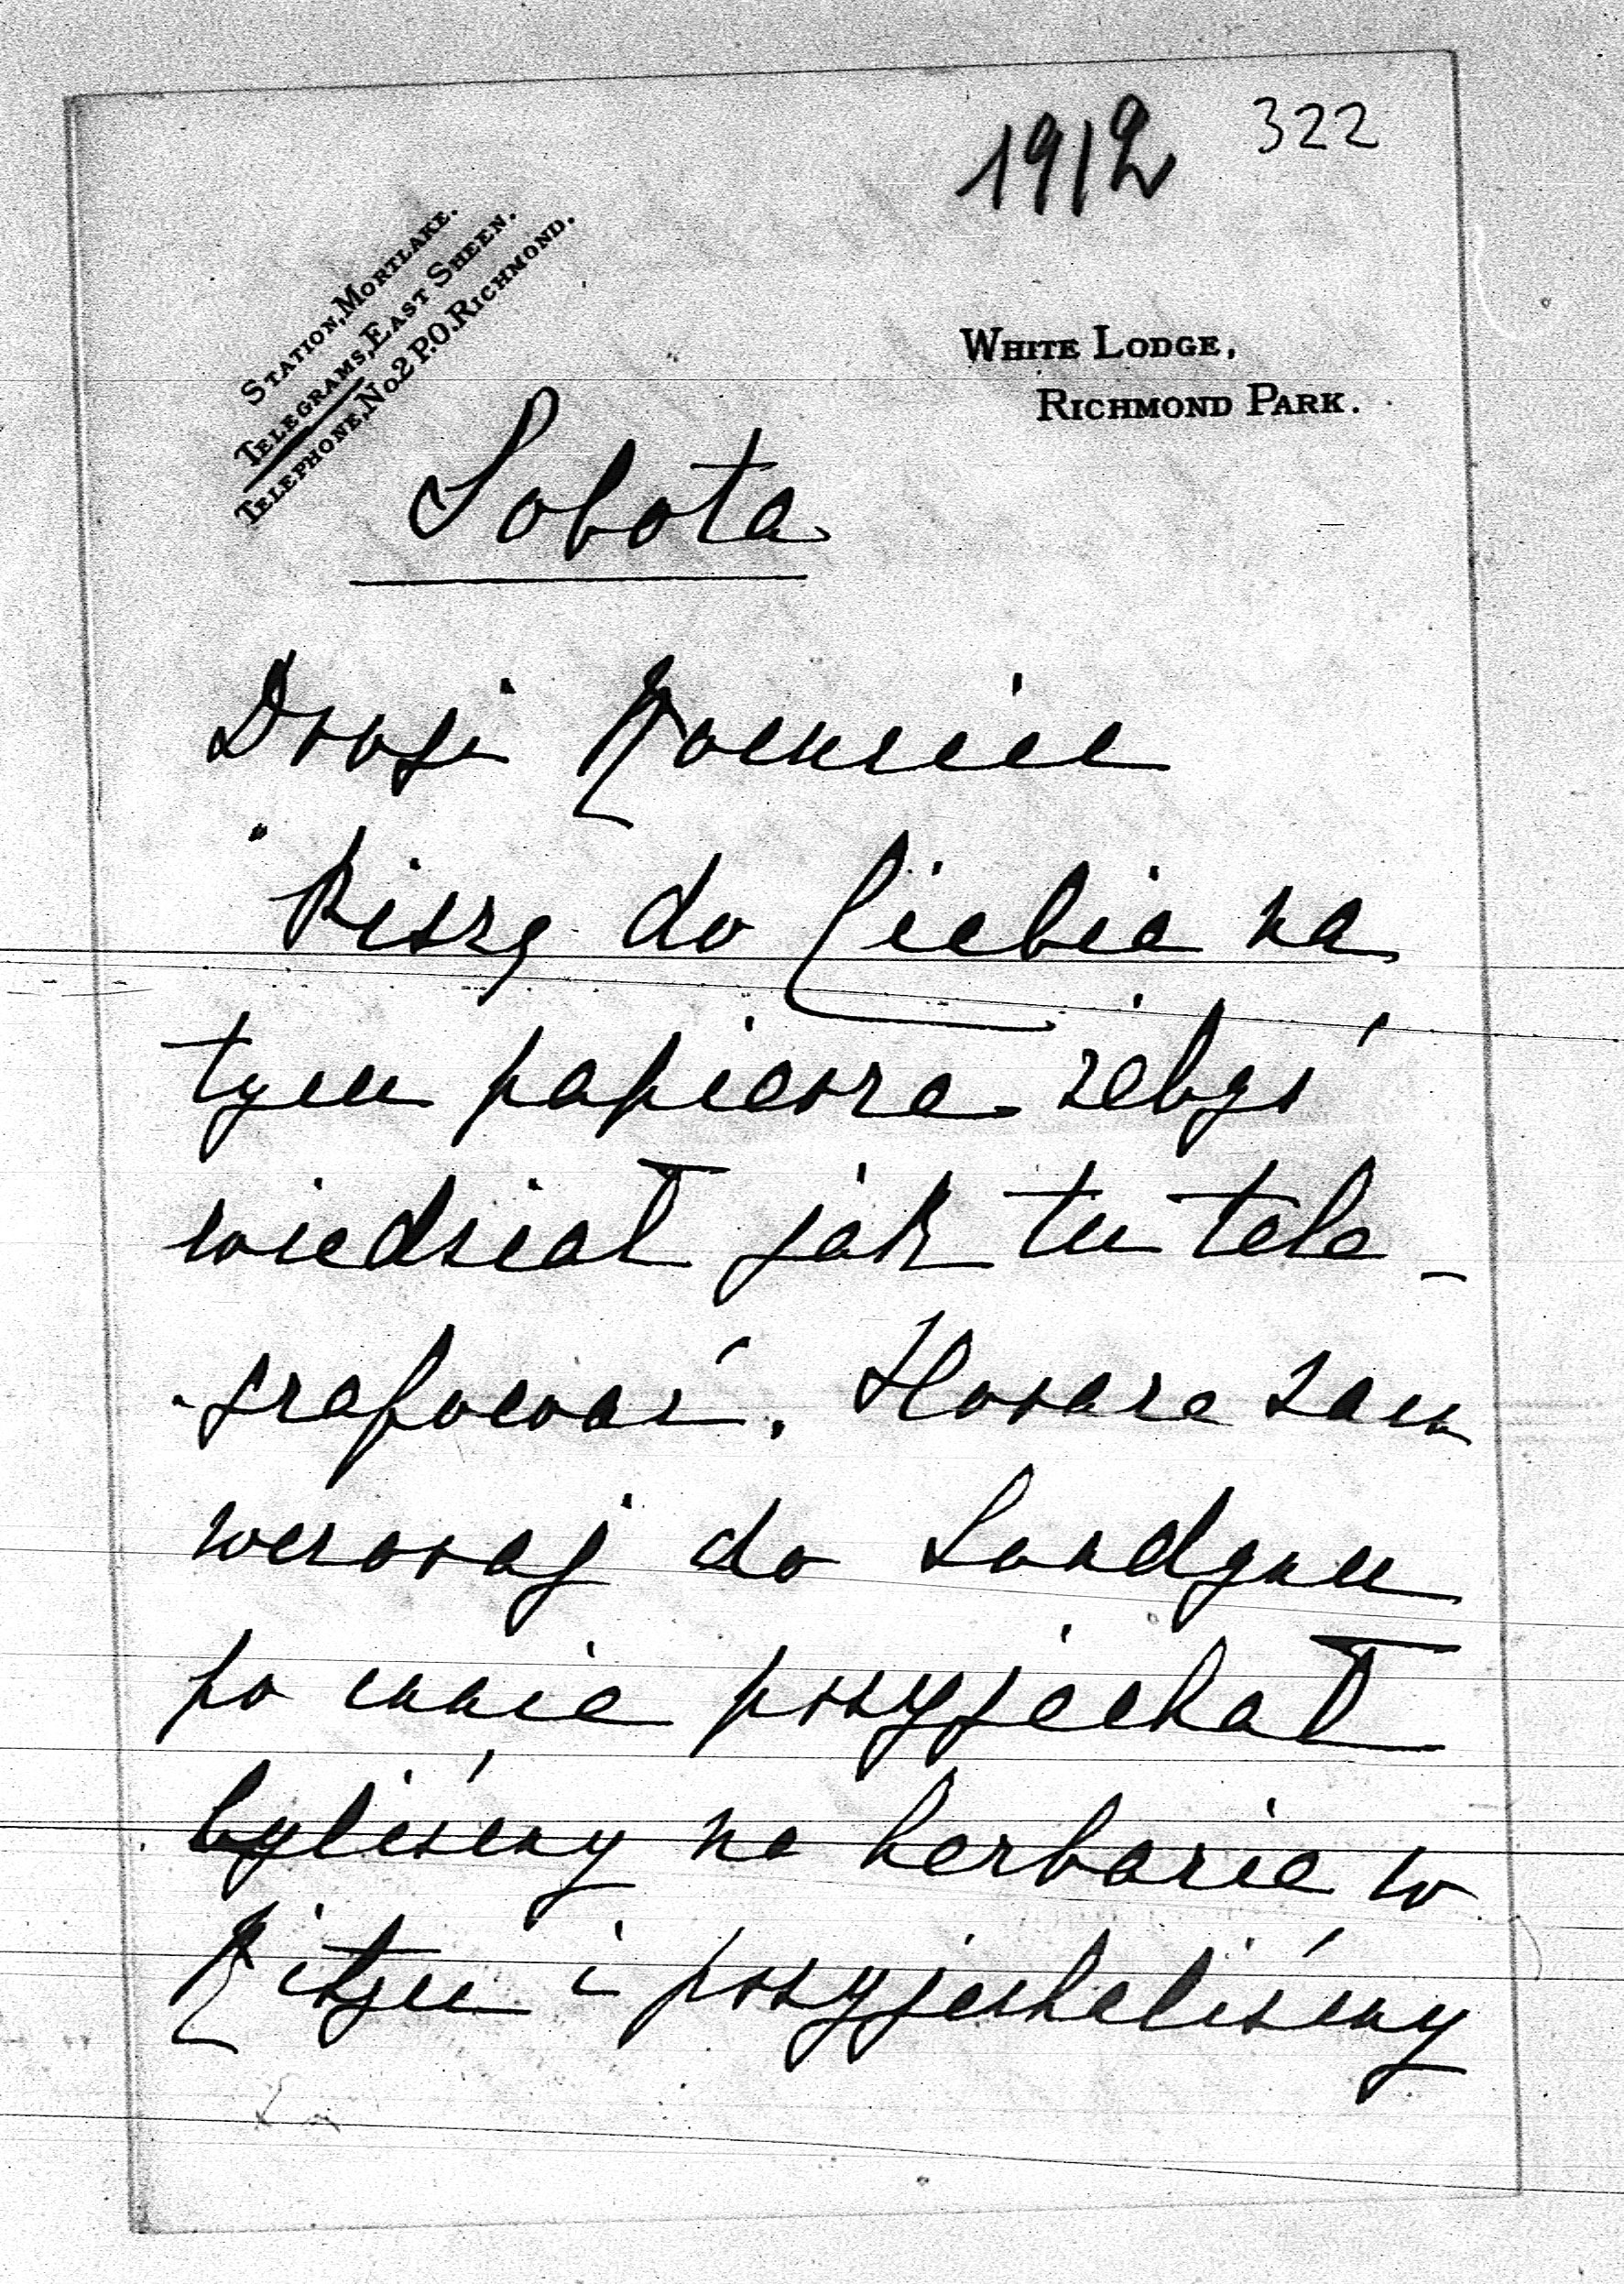 1912 322
STATION, MORTLAKE.
TELEGRAMS, EAST SHEEN.
TELEPHONE, No 2 P.O. RICHMOND.
WHITE LODGE,
RICHMOND PARK.
Sobota
Drogi
Piszę do Ciebie na
tym papierze żebyś
wiedział jak tu tele-
grafować. sam
wczoraj do Londynu
po mnie przyjechał
byliśmy na herbacie w
Ritzu i przyjechaliśmy